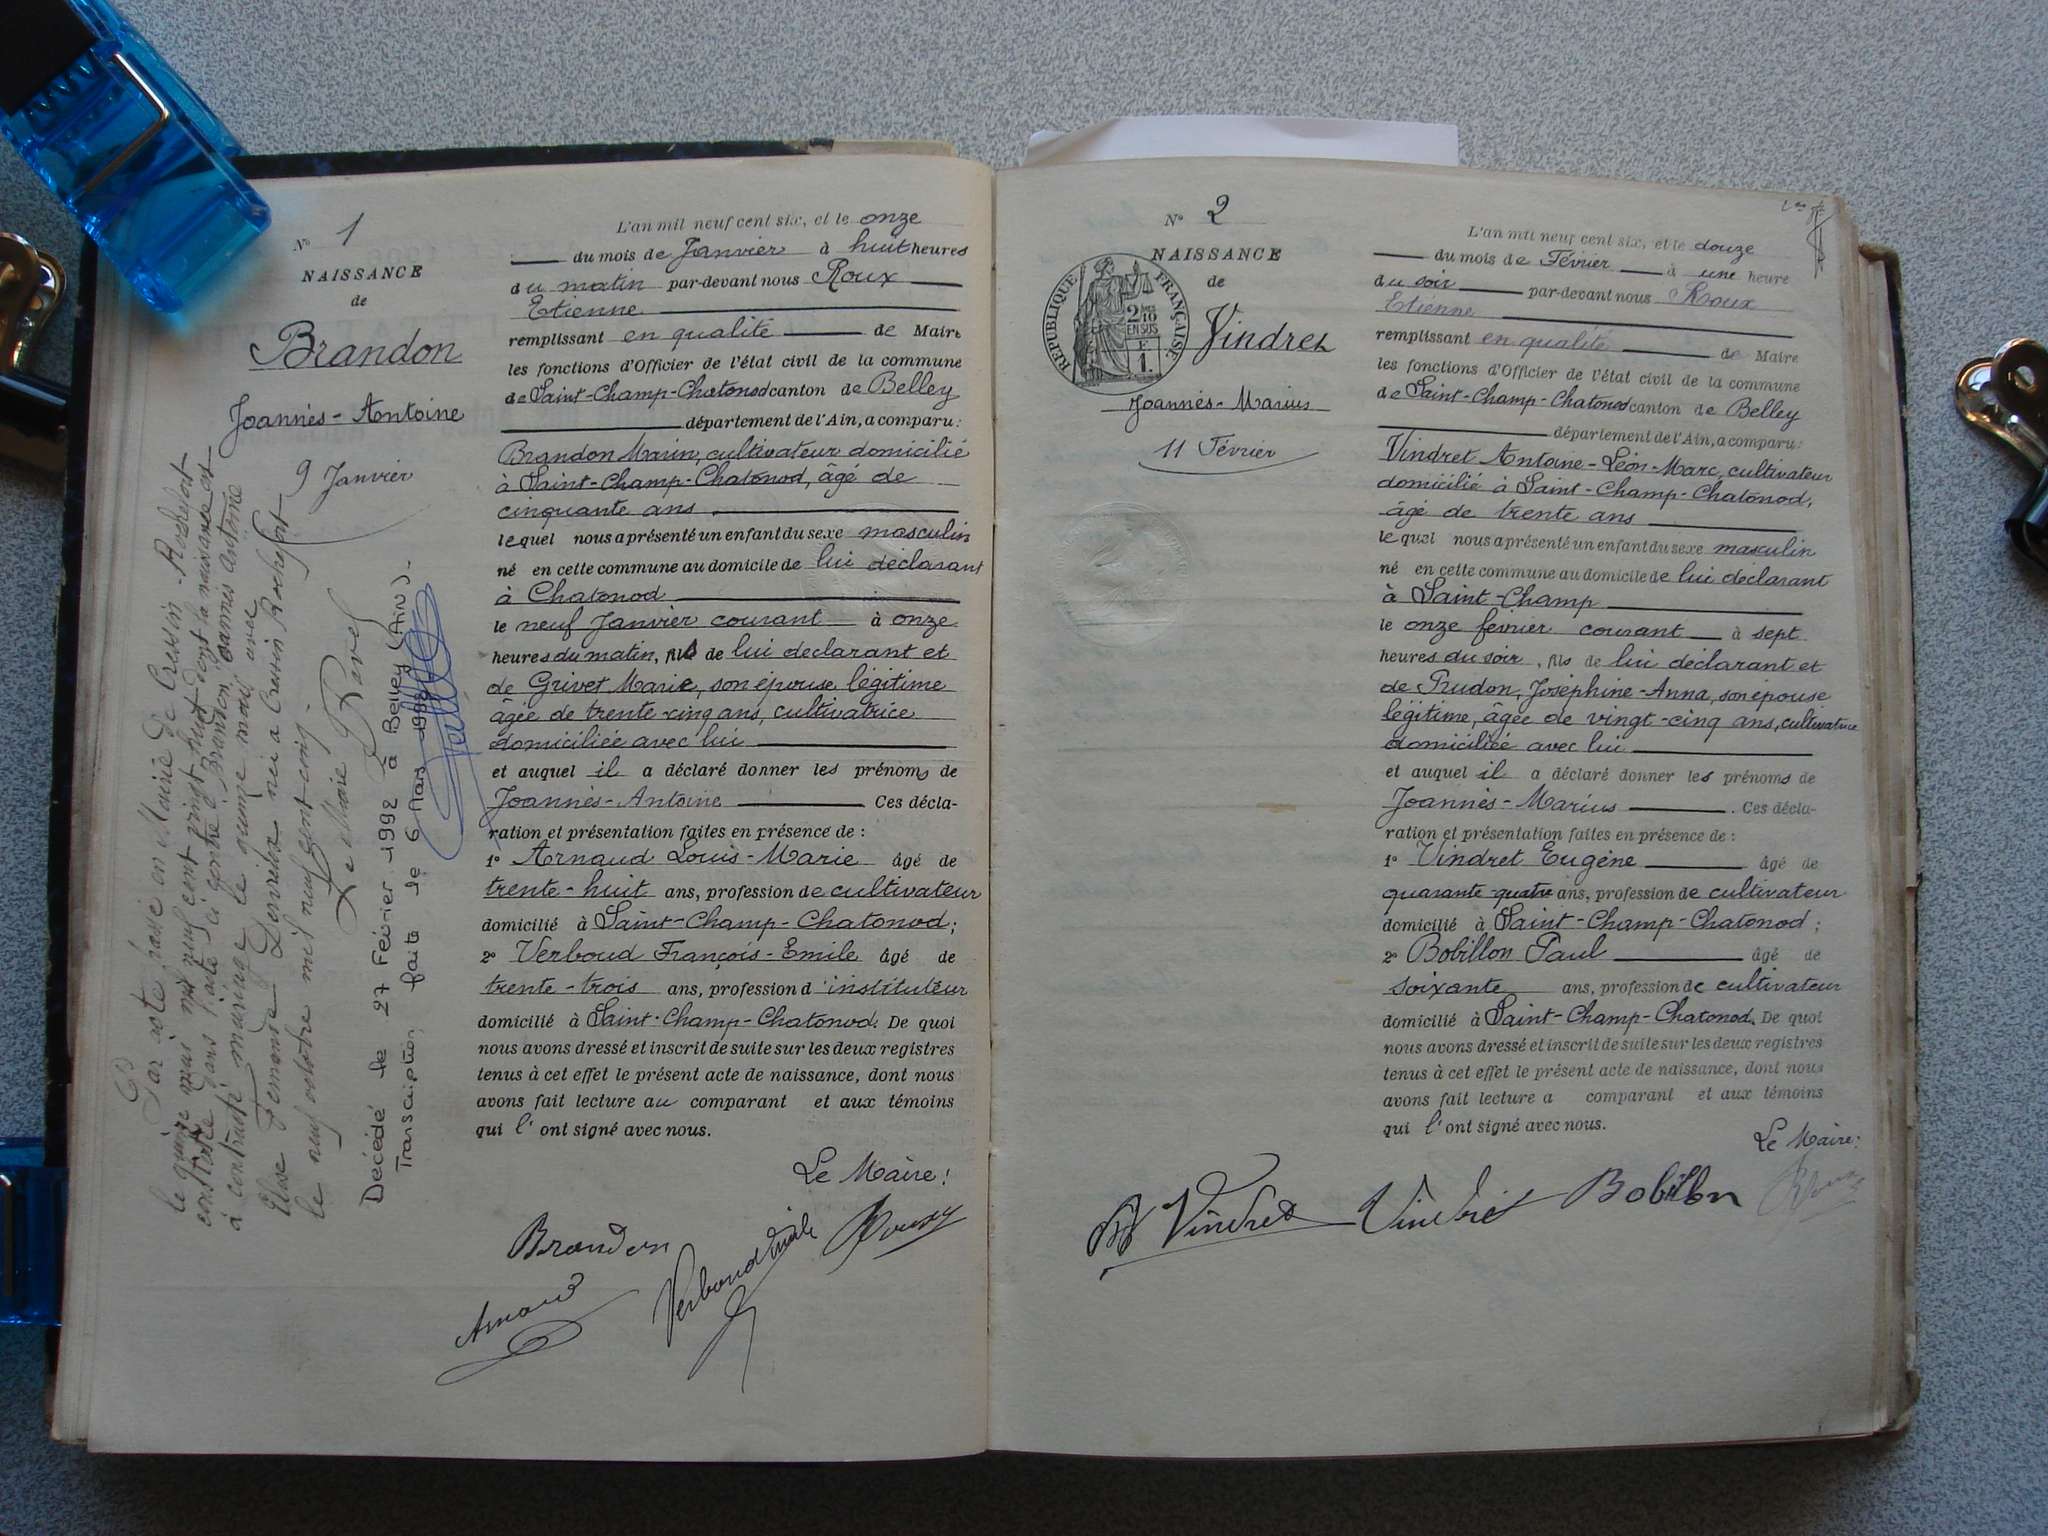 N° 1
NAISSANCE
de
Brandon
Joannès-Antoine
9 Janvier
Par acte passé en Mairie de Cressin-Rochefort
le quinze mars mil neuf cent vingt huit dont la naissance est
constatée dans l'acte ci contre Brandon Joannès Antoine
à contracté mariage le quinze mars avec
Elise Fernande née à Cressin Rochefort
le neuf octobre mil neuf cent cinq.
Le Maire
Décédé le 27 Février 1992 à Belley (Ain).
Transcription faite le 6 Mars 1992
L'an mil neuf cent six, et le onze
du mois de Janvier à huit heures
du matin par-devant nous Roux
Etienne
remplissant en qualité de Maire
les fonctions d'Officier de l'état civil de la commune
de Saint-Champ-Chatonod canton de Belley
département de l'Ain, a comparu:
Brandon Marin, cultivateur domicilié
à Saint-Champ-Chatonod, âgé de
cinquante ans
lequel nous a présenté un enfant du sexe masculin
né en cette commune au domicile de lui déclarant
à Chatonod
le neuf Janvier courant à onze
heures du matin, fils de lui déclarant et
de Grivet Marie, son épouse légitime
âgée de trente-cinq ans, cultivatrice
domiciliée avec lui
et auquel il a déclaré donner les prénoms de
Joannès-Antoine Ces décla-
ration et présentation faites en présence de :
1° Arnaud Louis-Marie âgé de
trente-huit ans, profession de cultivateur
domicilié à Saint-Champ-Chatonod;
2° Verboud François-Emile âgé de
trente-trois ans, profession d'instituteur
domicilié à Saint-Champ-Chatonod. De quoi
nous avons dressé et inscrit de suite sur les deux registres
tenus à cet effet le présent acte de naissance, dont nous
avons fait lecture au comparant et aux témoins
qui l'ont signé avec nous.
Le Maire:
Brandon
Arnaud
Verboud Emile
Roux
N° 2
NAISSANCE
de
RÉPUBLIQUE FRANÇAISE
2/10
EN SUS
F
1.
Vindret
Joannès-Marius
11 Février
L'an mil neuf cent six, et le douze
du mois de Février à une heure
du soir par-devant nous Roux
Etienne
remplissant en qualité de Maire
les fonctions d'Officier de l'état civil de la commune
de Saint-Champ-Chatonod canton de Belley
département de l'Ain, a comparu:
Vindret Antoine-Léon-Marc, cultivateur
domicilié à Saint-Champ-Chatonod,
âgé de trente ans
lequel nous a présenté un enfant du sexe masculin
né en cette commune au domicile de lui déclarant
à Saint-Champ
le onze fevrier courant à sept
heures du soir, fils de lui déclarant et
de Prudon, Joséphine-Anna, son épouse
légitime, âgée de vingt-cinq ans, cultivatrice
domiciliée avec lui
et auquel il a déclaré donner les prénoms de
Joannès-Marius. Ces décla-
ration et présentation faites en présence de :
1° Vindret Eugène âgé de
quarante-quatre ans, profession de cultivateur
domicilié à Saint-Champ-Chatonod ;
2° Bobillon Paul âgé de
soixante ans, profession de cultivateur
domicilié à Saint-Champ-Chatonod. De quoi
nous avons dressé et inscrit de suite sur les deux registres
tenus à cet effet le présent acte de naissance, dont nous
avons fait lecture a comparant et aux témoins
qui l'ont signé avec nous.
Le Maire:
Vindret Vindret Bobillon Roux